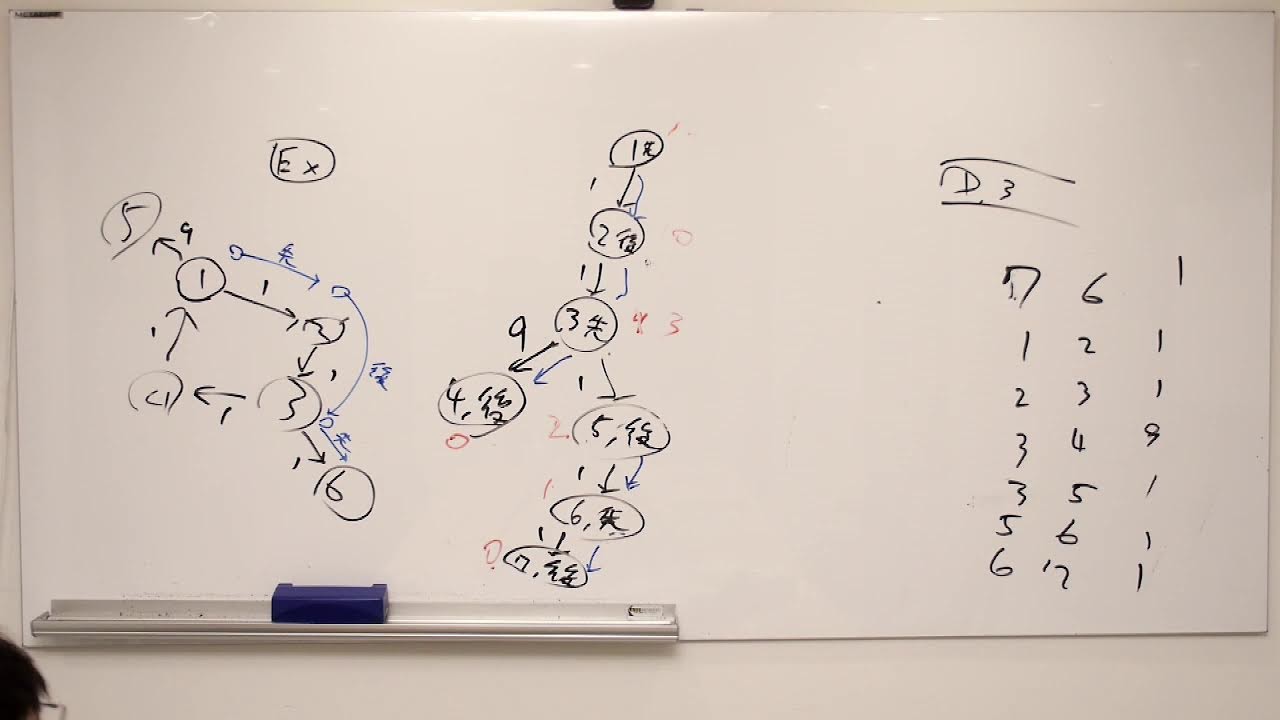 Ex
5
9
先
1
1
2
後
1
1
3
1
先
1
6
1先
1
2後
0
1
3先
4 3
9
1
4,後
0
5,後
2
1
1
6,先
1
0
7,後
D.3
7 6 1
1 2 1
2 3 1
3 4 9
3 5 1
5 6 1
6 7 1